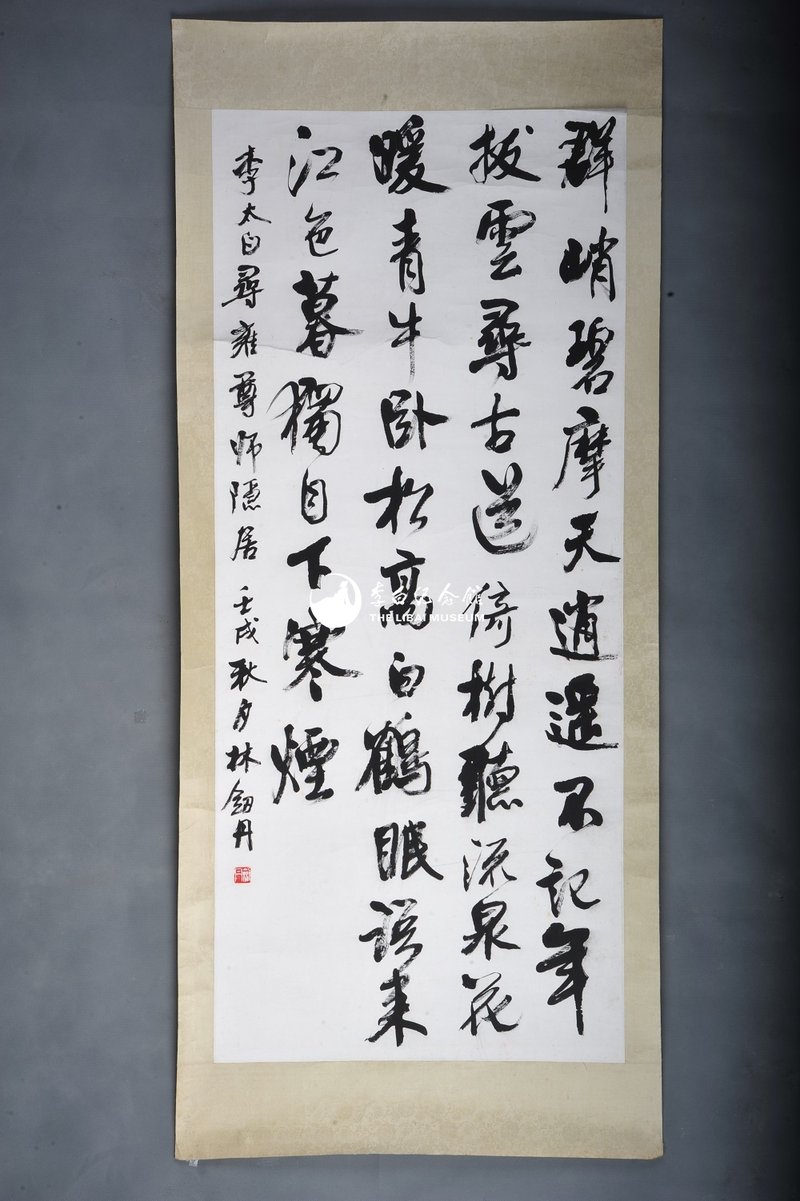 群峭碧摩天逍遥不記年
拔雲尋古道倚樹聽流泉花
暖青牛卧松高白鶴眠語来
江色暮獨自下寒煙
李太白尋雍尊师隐居 壬戌秋月林釼丹
李白纪念馆
THE LIBAI MUSEUM